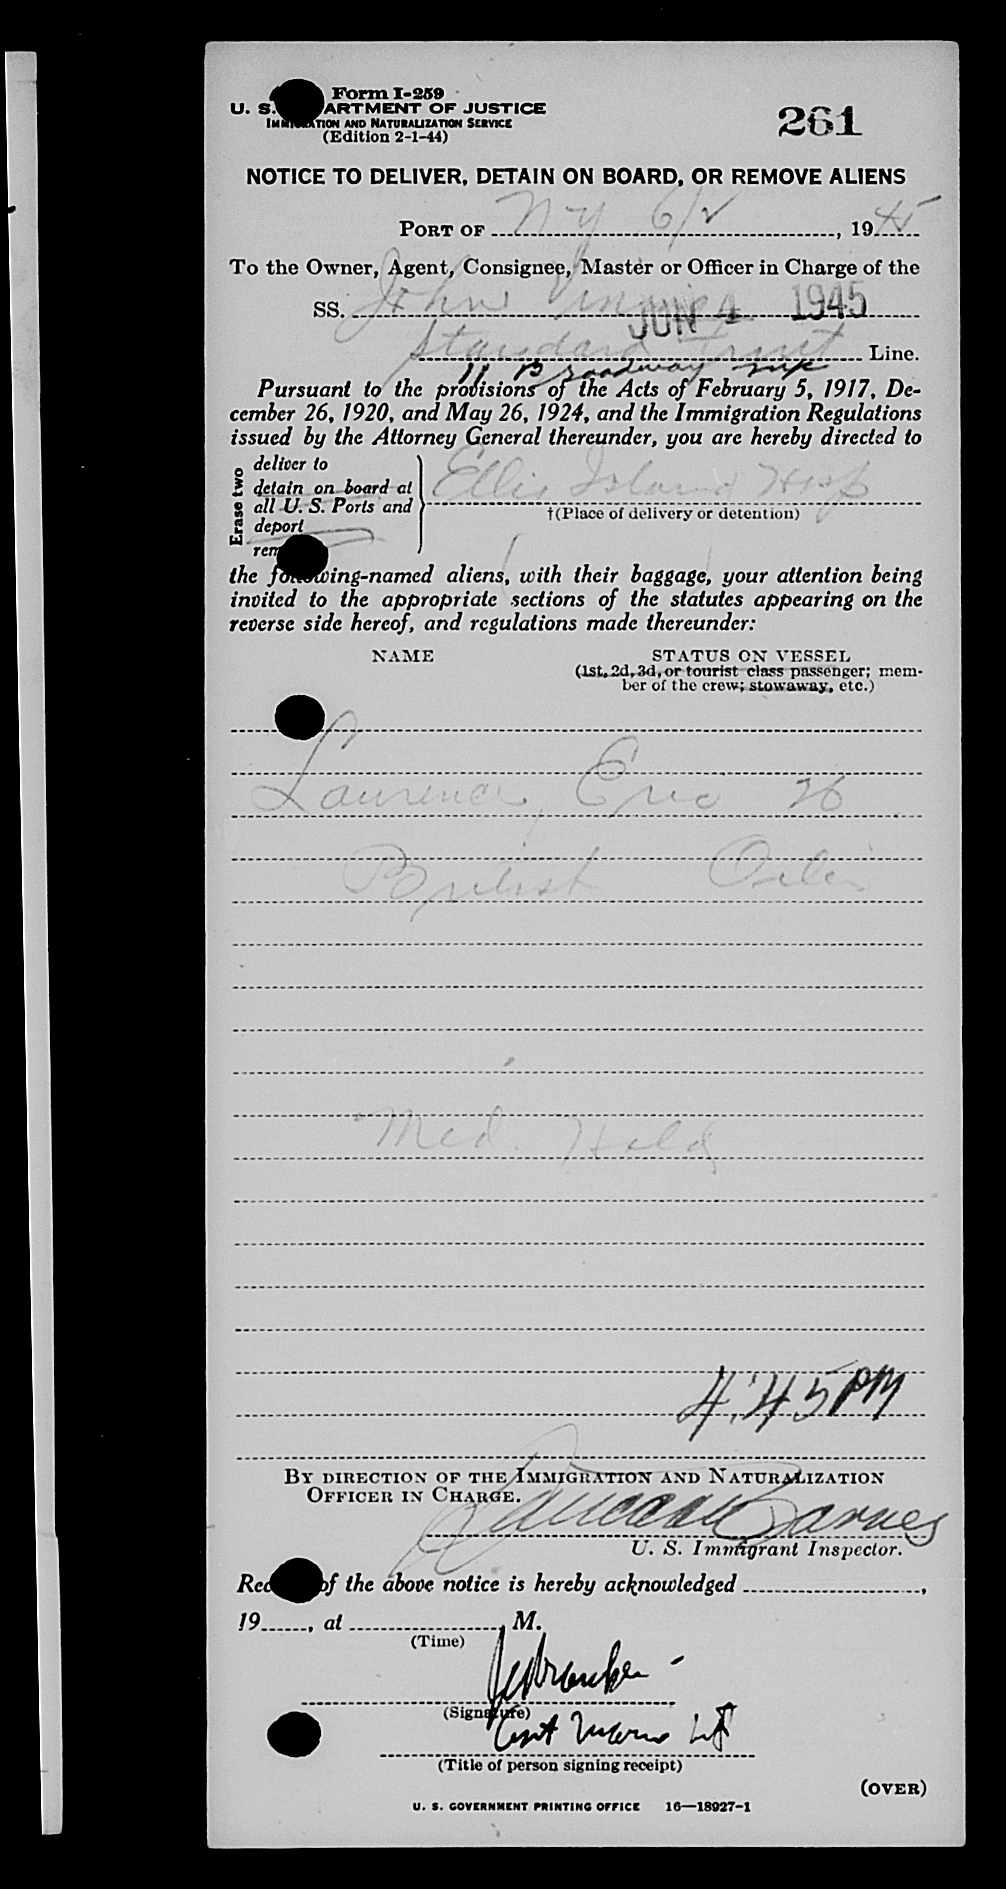 Form I-259
U. S. DEPARTMENT OF JUSTICE
IMMIGRATION AND NATURALIZATION SERVICE
(Edition 2-1-44)
261
NOTICE TO DELIVER, DETAIN ON BOARD, OR REMOVE ALIENS
PORT OF NY 6/2, 1945
To the Owner, Agent, Consignee, Master or Officer in Charge of the
SS. John
JUN 4 1945
Standard Fruit Line.
11 Broadway
Pursuant to the provisions of the Acts of February 5, 1917, De-
cember 26, 1920, and May 26, 1924, and the Immigration Regulations
issued by the Attorney General thereunder, you are hereby directed to
Erase two
deliver to
detain on board at
all U. S. Ports and
deport
rem
Ellis Island Hosp
†(Place of delivery or detention)
the following-named aliens, with their baggage, your attention being
invited to the appropriate sections of the statutes appearing on the
reverse side hereof, and regulations made thereunder:
NAME STATUS ON VESSEL
(1st, 2d, 3d, or tourist class passenger; mem-
ber of the crew; stowaway, etc.)
Lawrence, Eric 26
British Oiler
Med. Hold
4:45 PM
BY DIRECTION OF THE IMMIGRATION AND NATURALIZATION
OFFICER IN CHARGE.
Barnes
U. S. Immigrant Inspector.
Receipt of the above notice is hereby acknowledged ,
19 , at , M.
(Time)
(Signature)
(Title of person signing receipt)
(OVER)
U. S. GOVERNMENT PRINTING OFFICE 16—18927-1